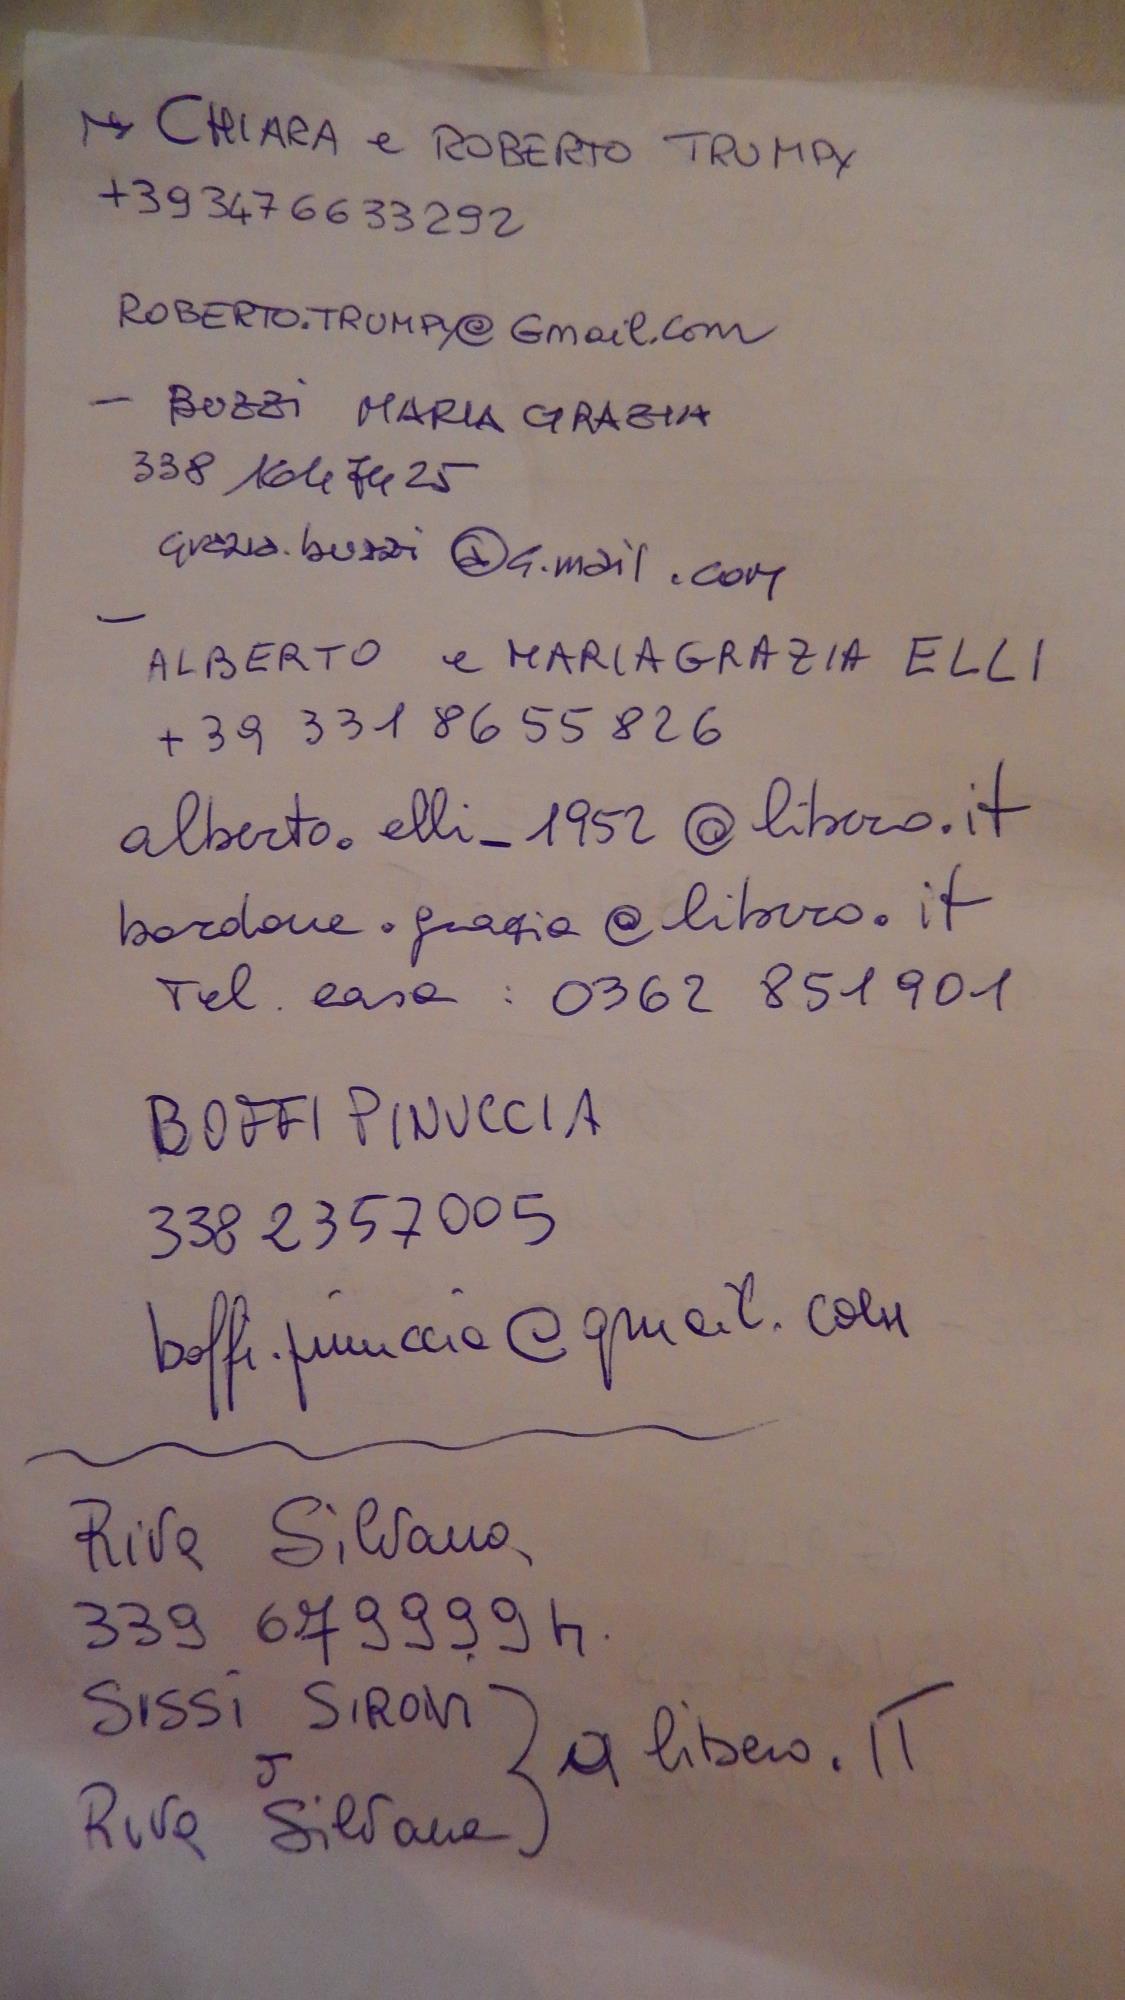 CHIARA e ROBERTO TRUMPY
+393476633292
ROBERTO.TRUMPY@Gmail.com
- BUZZI MARIA GRAZIA
338 1647425
grazia.buzzi @G.mail.com
-
ALBERTO e MARIAGRAZIA ELLI
+39 331 8655826
alberto.elli_1952@libero.it
bordone.grazia@libero.it
Tel. casa : 0362 851901
BOFFI PINUCCIA
338 2357005
boffi.pinuccia@gmail.com
Riva Silvana
339 679999h.
SISSI SIRONI
Riva Silvana
a libero.IT